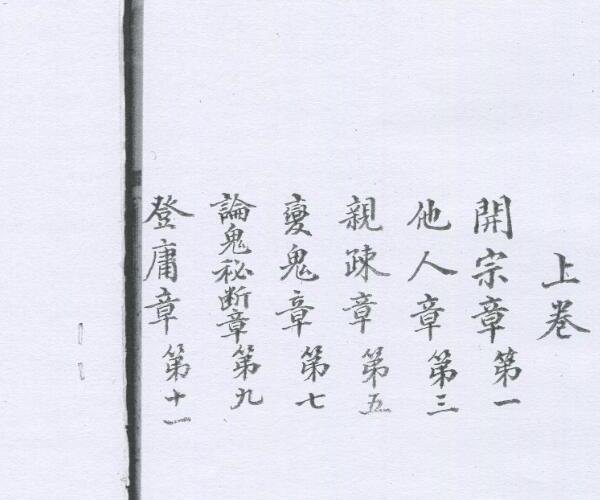 上卷
開宗章第一
他人章第三
親疎章第五
變鬼章第七
論鬼秘断章第九
登庸章第十一